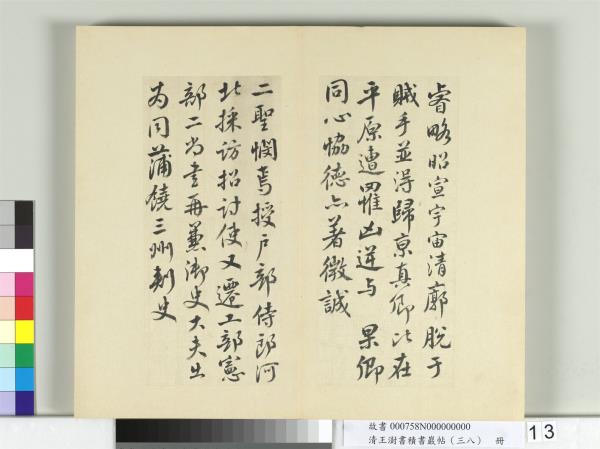 睿略昭宣宇宙清廓脫于
賊手並得歸京真卿比在
平原遭罹凶逆與 杲卿
同心協德亦著微誠
二聖憫焉授戶部侍郎河
北採訪招討使又遷工部憲
部二尚書再兼御史大夫出
為同蒲饒三州刺史
故書 000758N000000000
清王澍書積書巖帖(三八) 冊
13